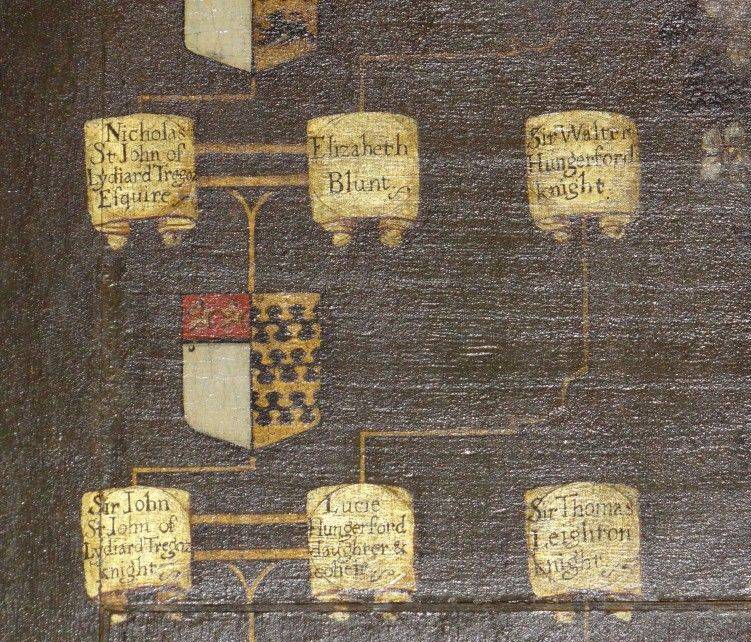 Nicholas
St John of
Lydiard Tregoz
Esquire
Elizabeth
Blunt
Sir Walter
Hungerford
knight
Sir John
St John of
Lydiard Tregoz
knight
Lucie
Hungerford
daughter &
coheir
Sir Thomas
Leighton
knight